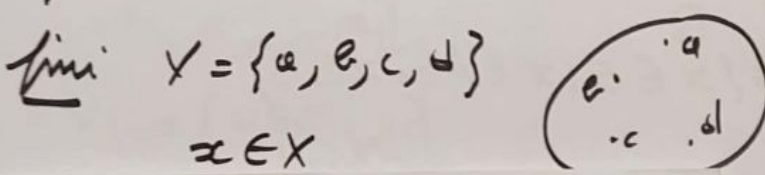 fini X = {a, b, c, d}
x ∈ X
a
b
c
d